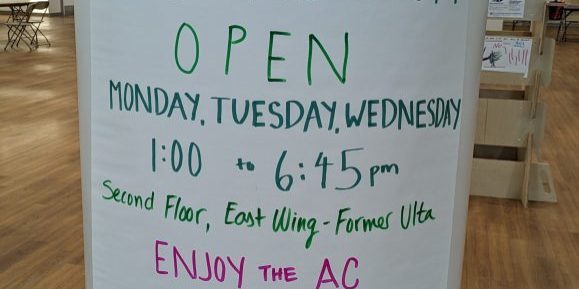 OPEN
MONDAY, TUESDAY, WEDNESDAY
1:00 to 6:45 pm
Second Floor, East Wing - Former Ulta
ENJOY THE AC